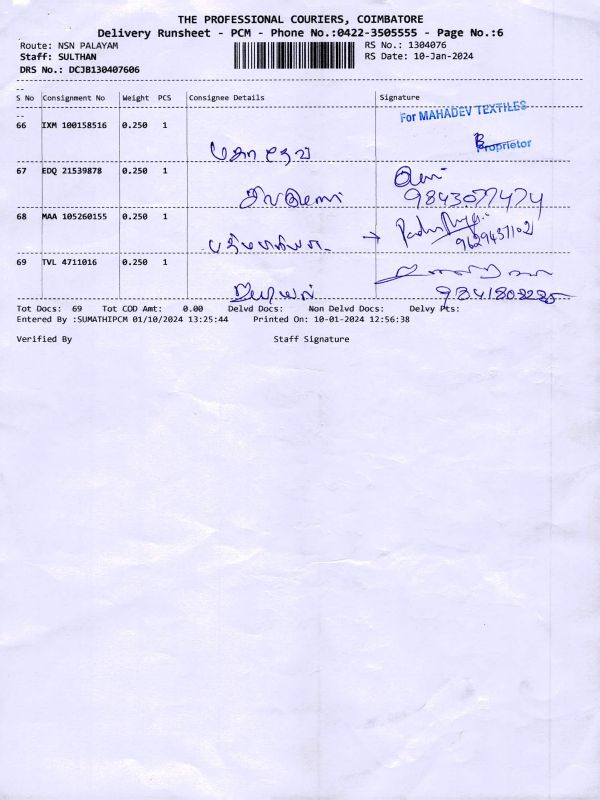 THE PROFESSIONAL COURIERS, COIMBATORE
Delivery Runsheet - PCM - Phone No.:0422-3505555 - Page No.:6
Route: NSN PALAYAM RS No.: 1304076
Staff: SULTHAN RS Date: 10-Jan-2024
DRS No.: DCJB130407606
--
S No Consignment No Weight PCS Consignee Details Signature
--
For MAHADEV TEXTILES
66 IXM 100158516 0.250 1
Proprietor
மகாதேவ்
67 EDQ 21539878 0.250 1
9843077474
68 MAA 105260155 0.250 1
9629437102
69 TVL 4711016 0.250 1
Tot Docs: 69 Tot COD Amt: 0.00 Delvd Docs: Non Delvd Docs: Delvy Pts:
Entered By :SUMATHIPCM 01/10/2024 13:25:44 Printed On: 10-01-2024 12:56:38
Verified By Staff Signature